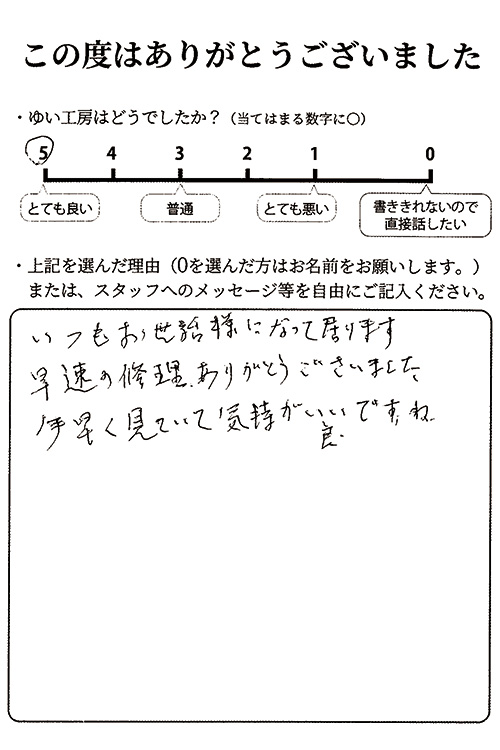 この度はありがとうございました
・ゆい工房はどうでしたか？（当てはまる数字に○）
5 4 3 2 1 0
とても良い 普通 とても悪い 書ききれないので直接話したい
・上記を選んだ理由（0を選んだ方はお名前をお願いします。）
または、スタッフへのメッセージ等を自由にご記入ください。
いつもお世話様になって居ります
早速の修理、ありがとうございました
手早く見ていて気持がいいですね
良